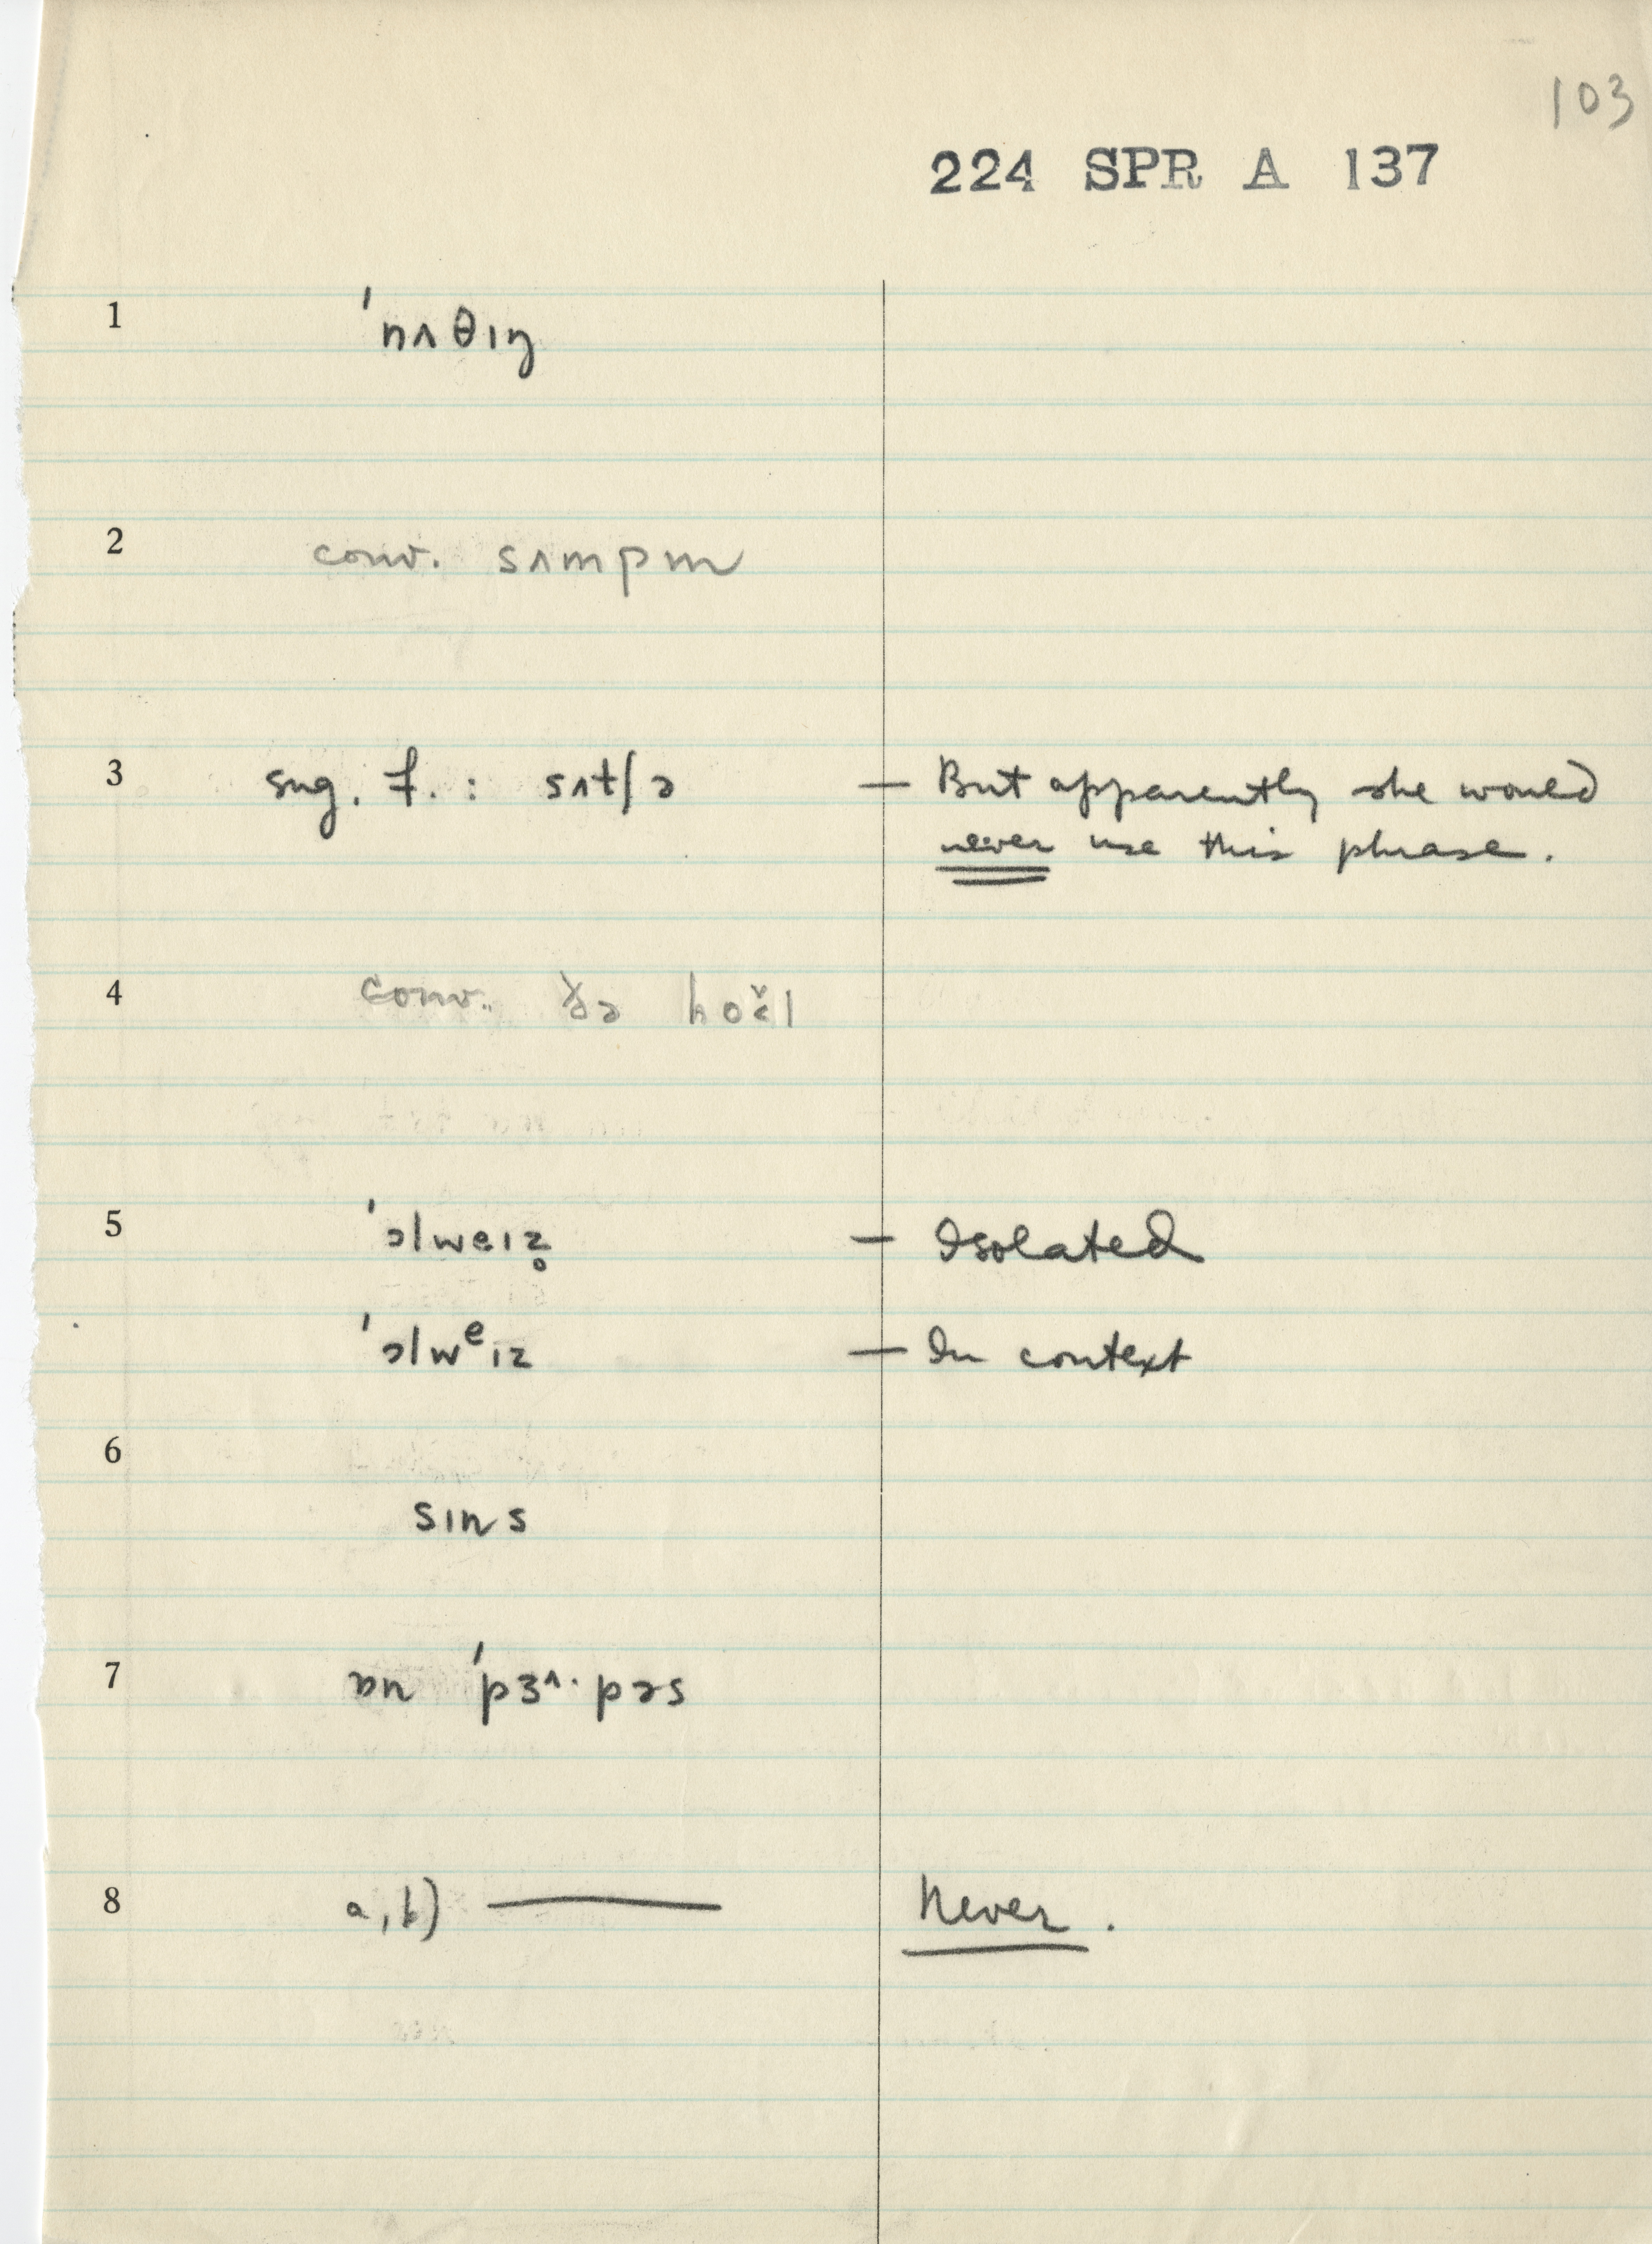 103
224 SPR A 137
1 ˈnʌθɪŋ
2 conv. sʌmpm
3 sug. f. : sʌtʃə — But apparently she would
never use this phrase.
4 conv. ðə hoɛ̌l
5 ˈɔlweɪz̥ — Isolated
ˈɔlwᵉɪz — In context
6
sɪns
7 ɒn ˈpɜ^·pəs
8 a, b) — Never.